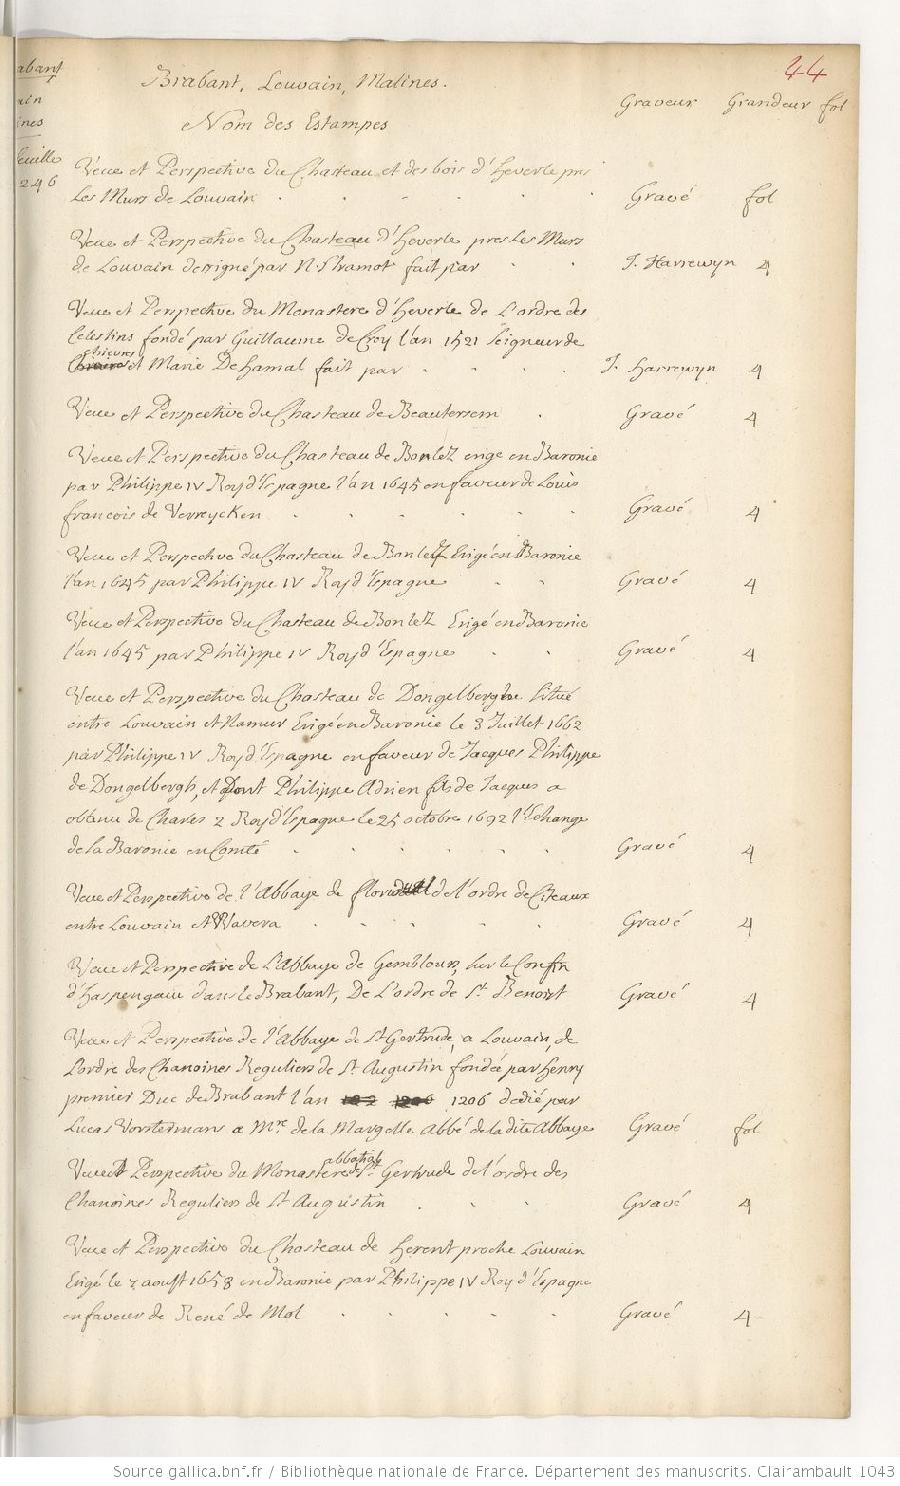 44
Brabant, Louvain, Malines.
Graveur Grandeur fol
Nom des Estampes
abant
ain
ines
feuille
246
Veue et Perspective du Chasteau et des bois d'Heverle pres
Les Murs de Louvain Gravé fol
Veue et Perspective du Chasteau d'Heverle pres les Murs
de Louvain dessigné par fait par J. Harrewyn 4
Veue et Perspective du Monastere d'Heverle de L'ordre des
Celestins fondé par Guillaume de Croy l'an 1521 Seigneur de
Chievres et Marie De Hamal fait par J. Harrewyn 4
Veue et Perspective du Chasteau de Beautersem Gravé 4
Veue et Perspective du Chasteau de Bonlez erigé en Baronie
par Philippe IV Roy d'Espagne l'an 1645 en faveur de Louis
francois de Verreycken Gravé 4
Veue et Perspective du Chasteau de Bonlez Erigé en Baronie
l'an 1645 par Philippe IV Roy d'Espagne Gravé 4
Veue et Perspective du Chasteau de Bonlez Erigé en Baronie
l'an 1645 par Philippe IV Roy d'Espagne Gravé 4
Veue et Perspective du Chasteau de Dongelberghe Situé
entre Louvain et Namur Erigé en Baronie le 3 Juillet 1662
par Philippe IV Roy d'Espagne en faveur de Jacques Philippe
de Dongelbergh, et Dont Philippe Adrien fils de Jacques a
obtenu de Charles 2 Roy d'Espagne le 25 octobre 1692 l'Echange
de la Baronie en Comté Gravé 4
Veue et Perspective de l'Abbaye de de l'ordre de Citeaux
entre Louvain et Wavera Gravé 4
Veue et Perspective de L'abbaye de Gemblours, Sur le Confin
d'Haspengauu dans le Brabant, De L'ordre de St. Benoist Gravé 4
Veue et Perspective de l'Abbaye de St Gertrude, a Louvain, de
L'ordre des Chanoines Reguliers de St. Augustin fondée par Henry
premier Duc de Brabant l'an 1206 dedié par
Lucas Vorstermans a Mre. de la Margelle. Abbé de la dite Abbaye Gravé fol
Veue et Perspective du Monastere abbatial de St. Gertrude de l'ordre des
Chanoines Reguliers de St Augustin Gravé 4
Veue et Perspective du Chasteau de Herent proche Louvain
Erigé le 2 aoust 1658 en Baronie par Philippe IV Roy d'Espagne
en faveur de René de Mol Gravé 4
Source gallica.bnf.fr / Bibliothèque nationale de France. Département des manuscrits. Clairambault 1043